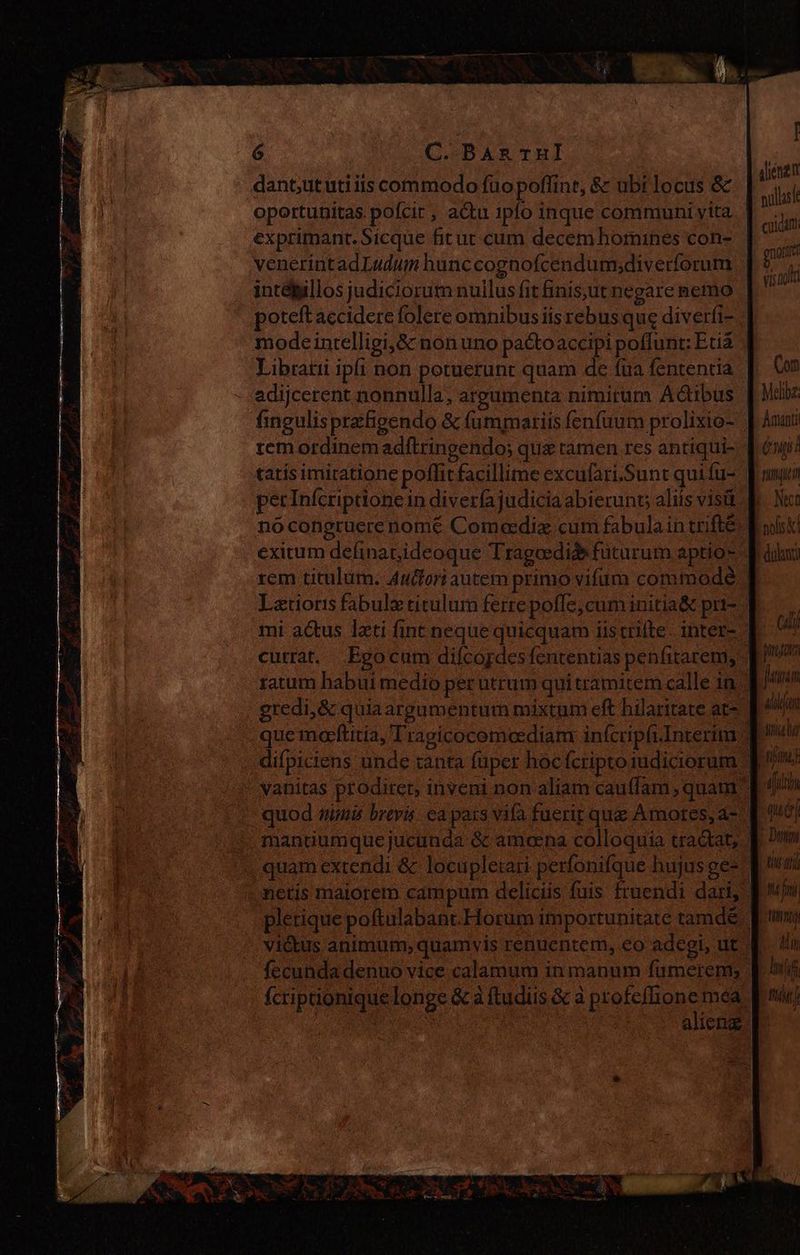 6 C. BARTHI
dant,ut uti iis commodo ſuo poſſint, & ubi locus &
oportunitas poſcit, actu ipſo inque communi vita
exprimant. Sicque fit ut cum decem homines con-
venerint ad Ludum hunc cognoſcendum, diverſorum
illos judiciorum nullus ſit finis, ut negare nemo
poteſt accidere ſolere omnibus iis rebus que diverſi-
mode intelligi, & non uno pacto accipi poſſunt: Etiā
Librarii ipſi non potuerunt quam de ſua ſententia
adijcerent nonnulla, argumenta nimirum Actibus
ſingulis præfigendo & ſummariis ſenſuum prolixio-
rem ordinem adſtringendo; quæ tamen res antiqui-
tatis imitatione poſſit facillime excuſari. Sunt qui ſu-
per Inſcriptione in diverſa judicia abierunt; aliis visū
nō congruere nomē Comœdiæ cum fabula in triſtē
exitum deſinat, ideoque Tragœdiæ futurum aptio-
rem titulum. Auctori autem primo viſum commodè
Lætioris fabulæ titulum ferre poſſe, cum initia & pri-
mi actus læti ſint neque quicquam iis triſte inter-
currat. Ego cum diſcordes ſententias penſitarem,
ratum habui medio per utrum qui tramitem calle in
gredi, & quia argumentum mixtum eſt hilaritate at-
que mœſtitia, Tragicocomœdiam inſcripſi. Interim
diſpiciens unde tanta ſuper hoc ſcripto iudiciorum
vanitas prodiret, inveni non aliam cauſſam, quam
quod nimis brevis ea pars viſa fuerit quæ Amores, a-
mantiumque jucunda & amœna colloquia tractat,
quam extendi & locupletari perſonisque hujus ge-
neris maiorem campum deliciis ſuis fruendi dari,
plerique poſtulabant. Horum importunitate tamdē
victus animum, quamvis renuentem, eo adegi, ut
ſecunda denuo vice calamum in manum ſumerem,
ſcriptionique longe & à ſtudiis & à profeſſione mea
alienæ